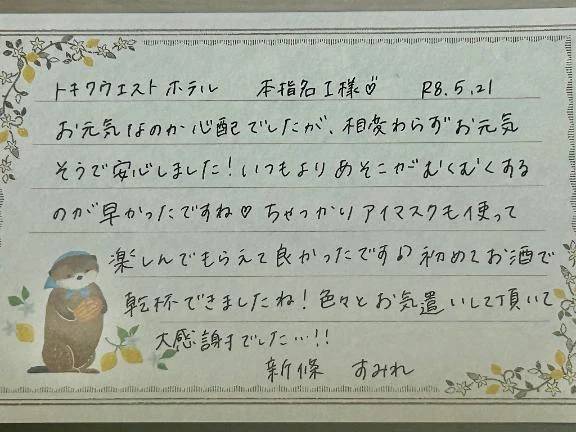 トキワウエストホテル 本指名I様♡ R8.5.21
お元気なのか心配でしたが、相変わらずお元気
そうで安心しました！いつもよりあそこがむくむくする
のが早かったですね♡ ちゃっかりアイマスクも使って
楽しんでもらえて良かったです♪ 初めてお酒で
乾杯できましたね！色々とお気遣いして頂いて
大感謝すでした…!!
新條 すみれ